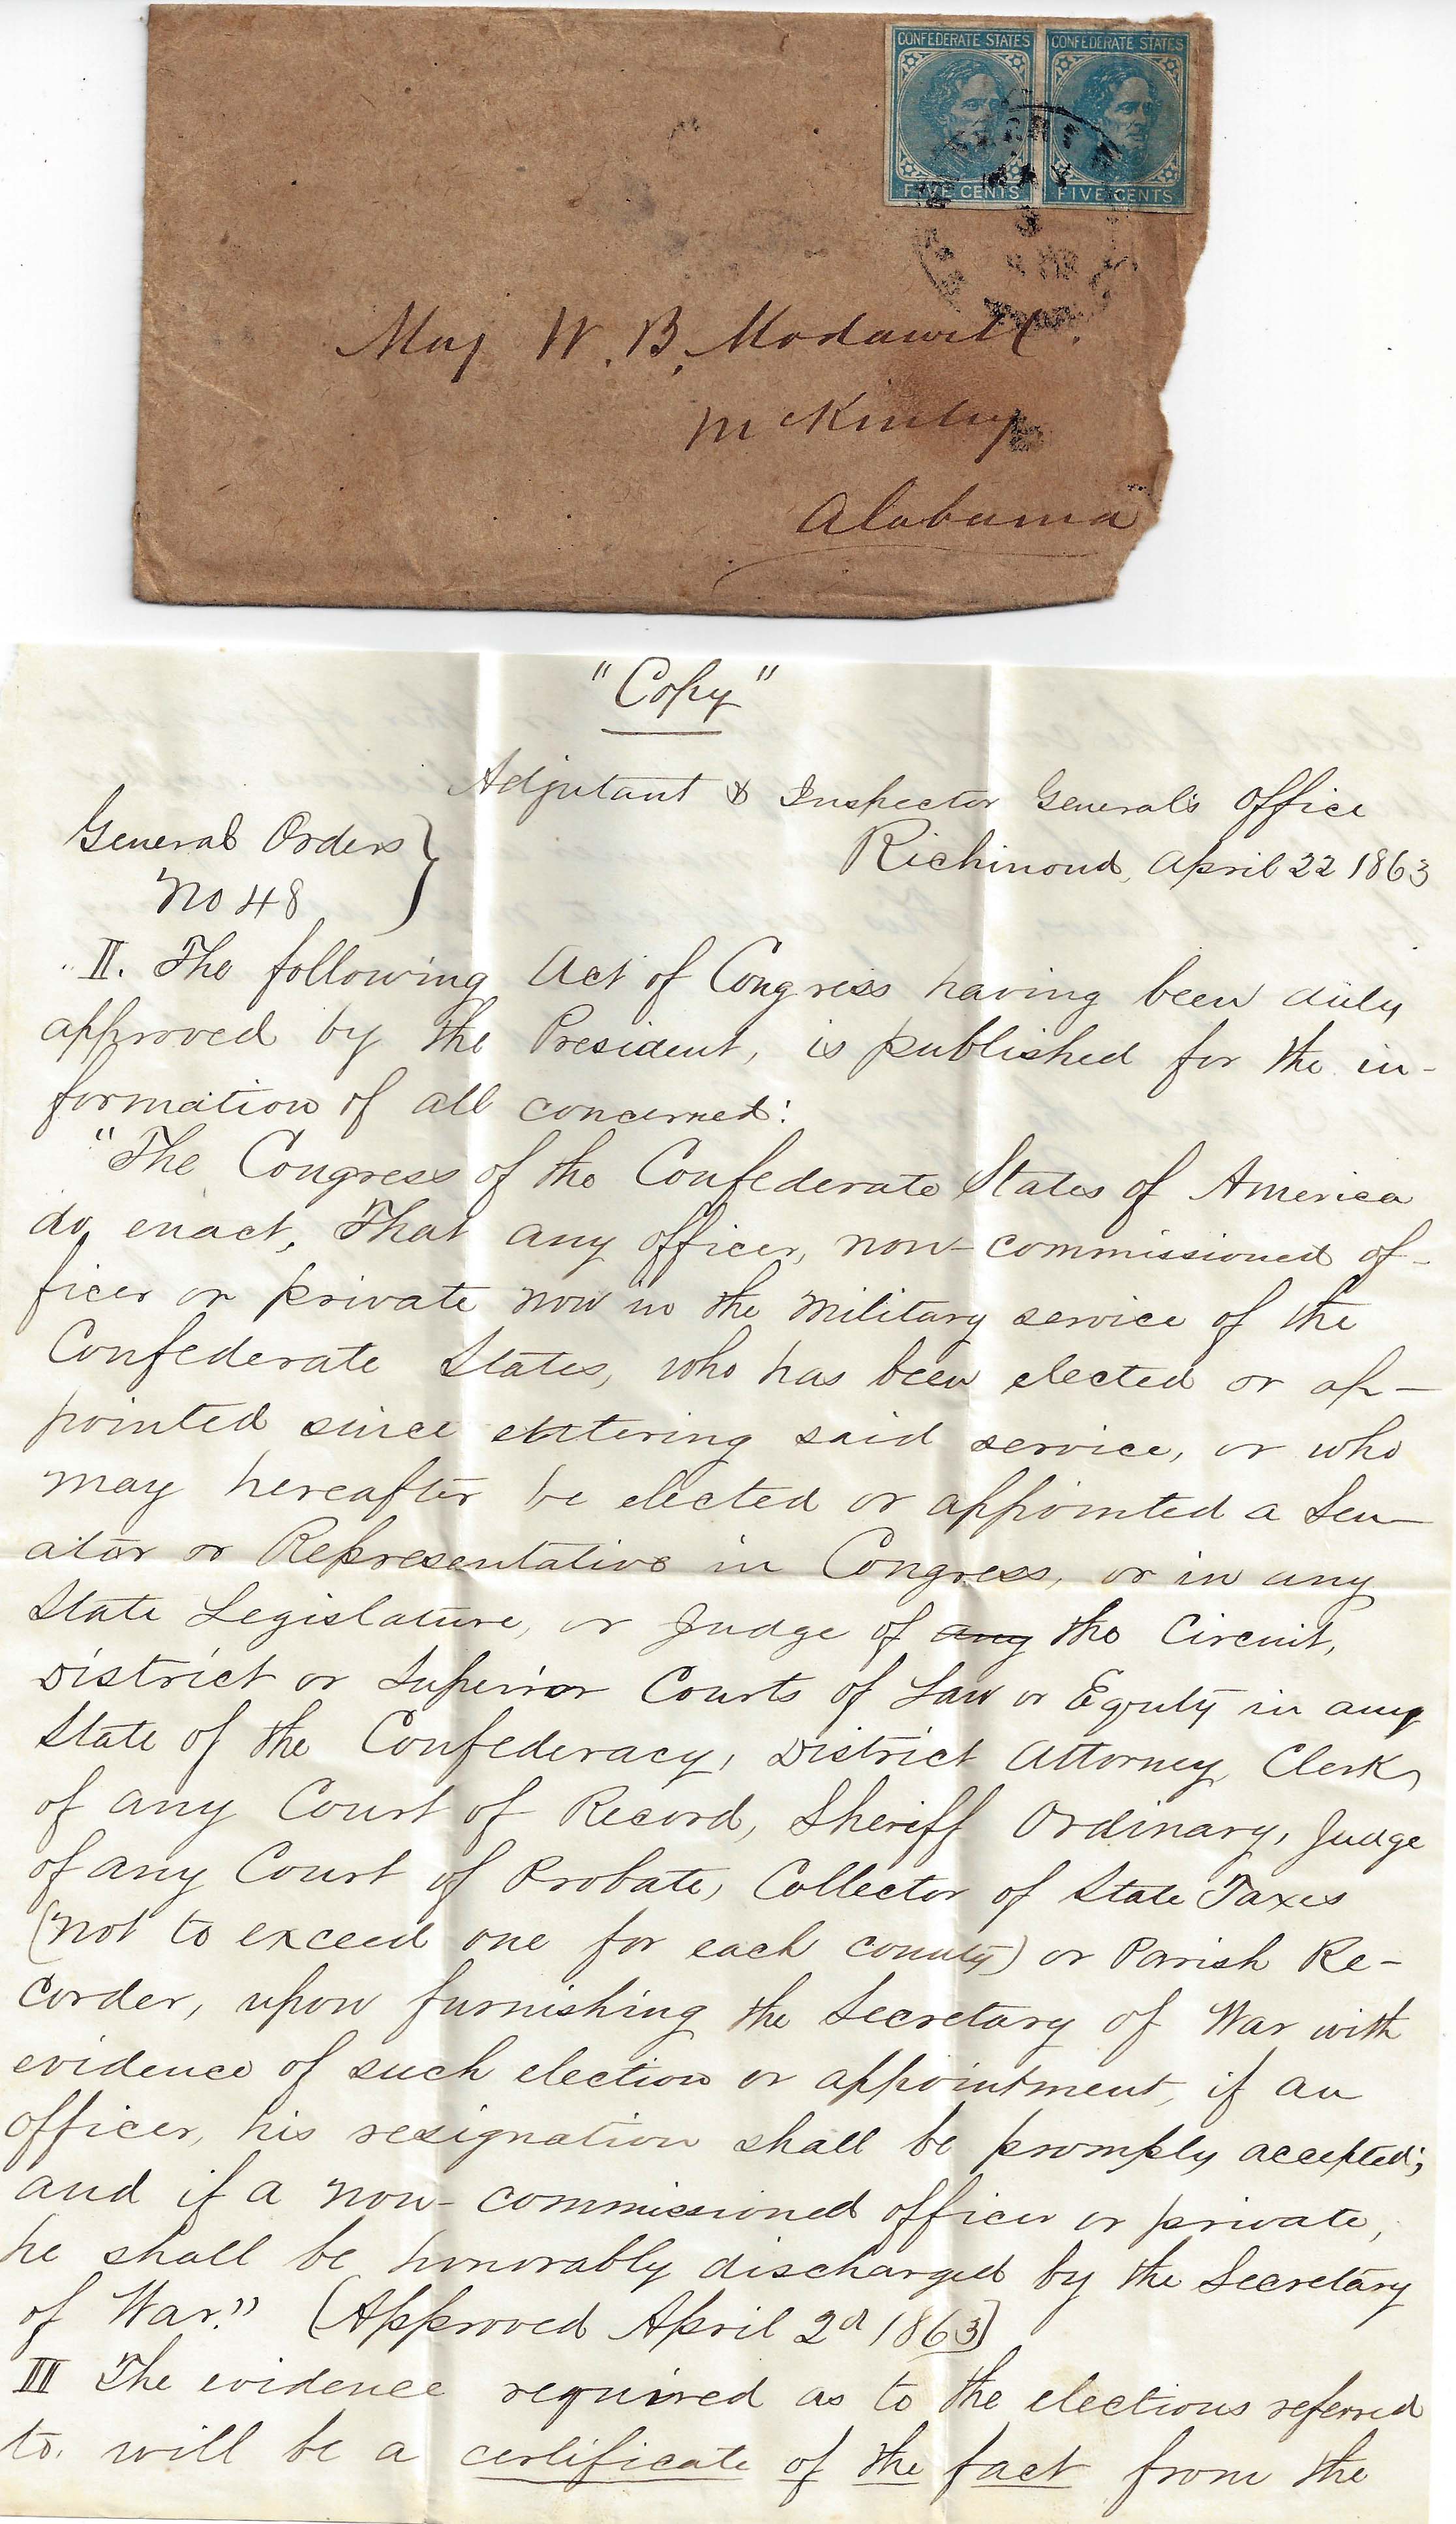 CONFEDERATE STATES CONFEDERATE STATES
FIVE CENTS FIVE CENTS
MAY
3
Maj W. B. Modawell.
McKinley
Alabama
"Copy"
Adjutant & Inspector General's Office
Richmond, April 22 1863
General Orders
No 48
II. The following Act of Congress having been duly
approved by the President, is published for the in-
formation of all concerned:
"The Congress of the Confederate States of America
do enact, That any officer, non-commissioned of-
ficer or private now in the military service of the
Confederate States, who has been elected or ap-
pointed since entering said service, or who
may hereafter be elected or appointed a Sen-
ator or Representative in Congress, or in any
State Legislature, or Judge of any the Circuit,
District or Superior Courts of Law or Equity in any
State of the Confederacy, District Attorney, Clerk,
of any Court of Record, Sheriff Ordinary, Judge
of any Court of Probate, Collector of State Taxes
(not to exceed one for each county) or Parish Re-
corder, upon furnishing the Secretary of War with
evidence of such election or appointment, if an
officer, his resignation shall be promply accepted;
and if a non-commissioned officer or private,
he shall be honorably discharged by the Secretary
of War." (Approved April 2d 1863)
III The evidence required as to the elections referred
to, will be a certificate of the fact from the